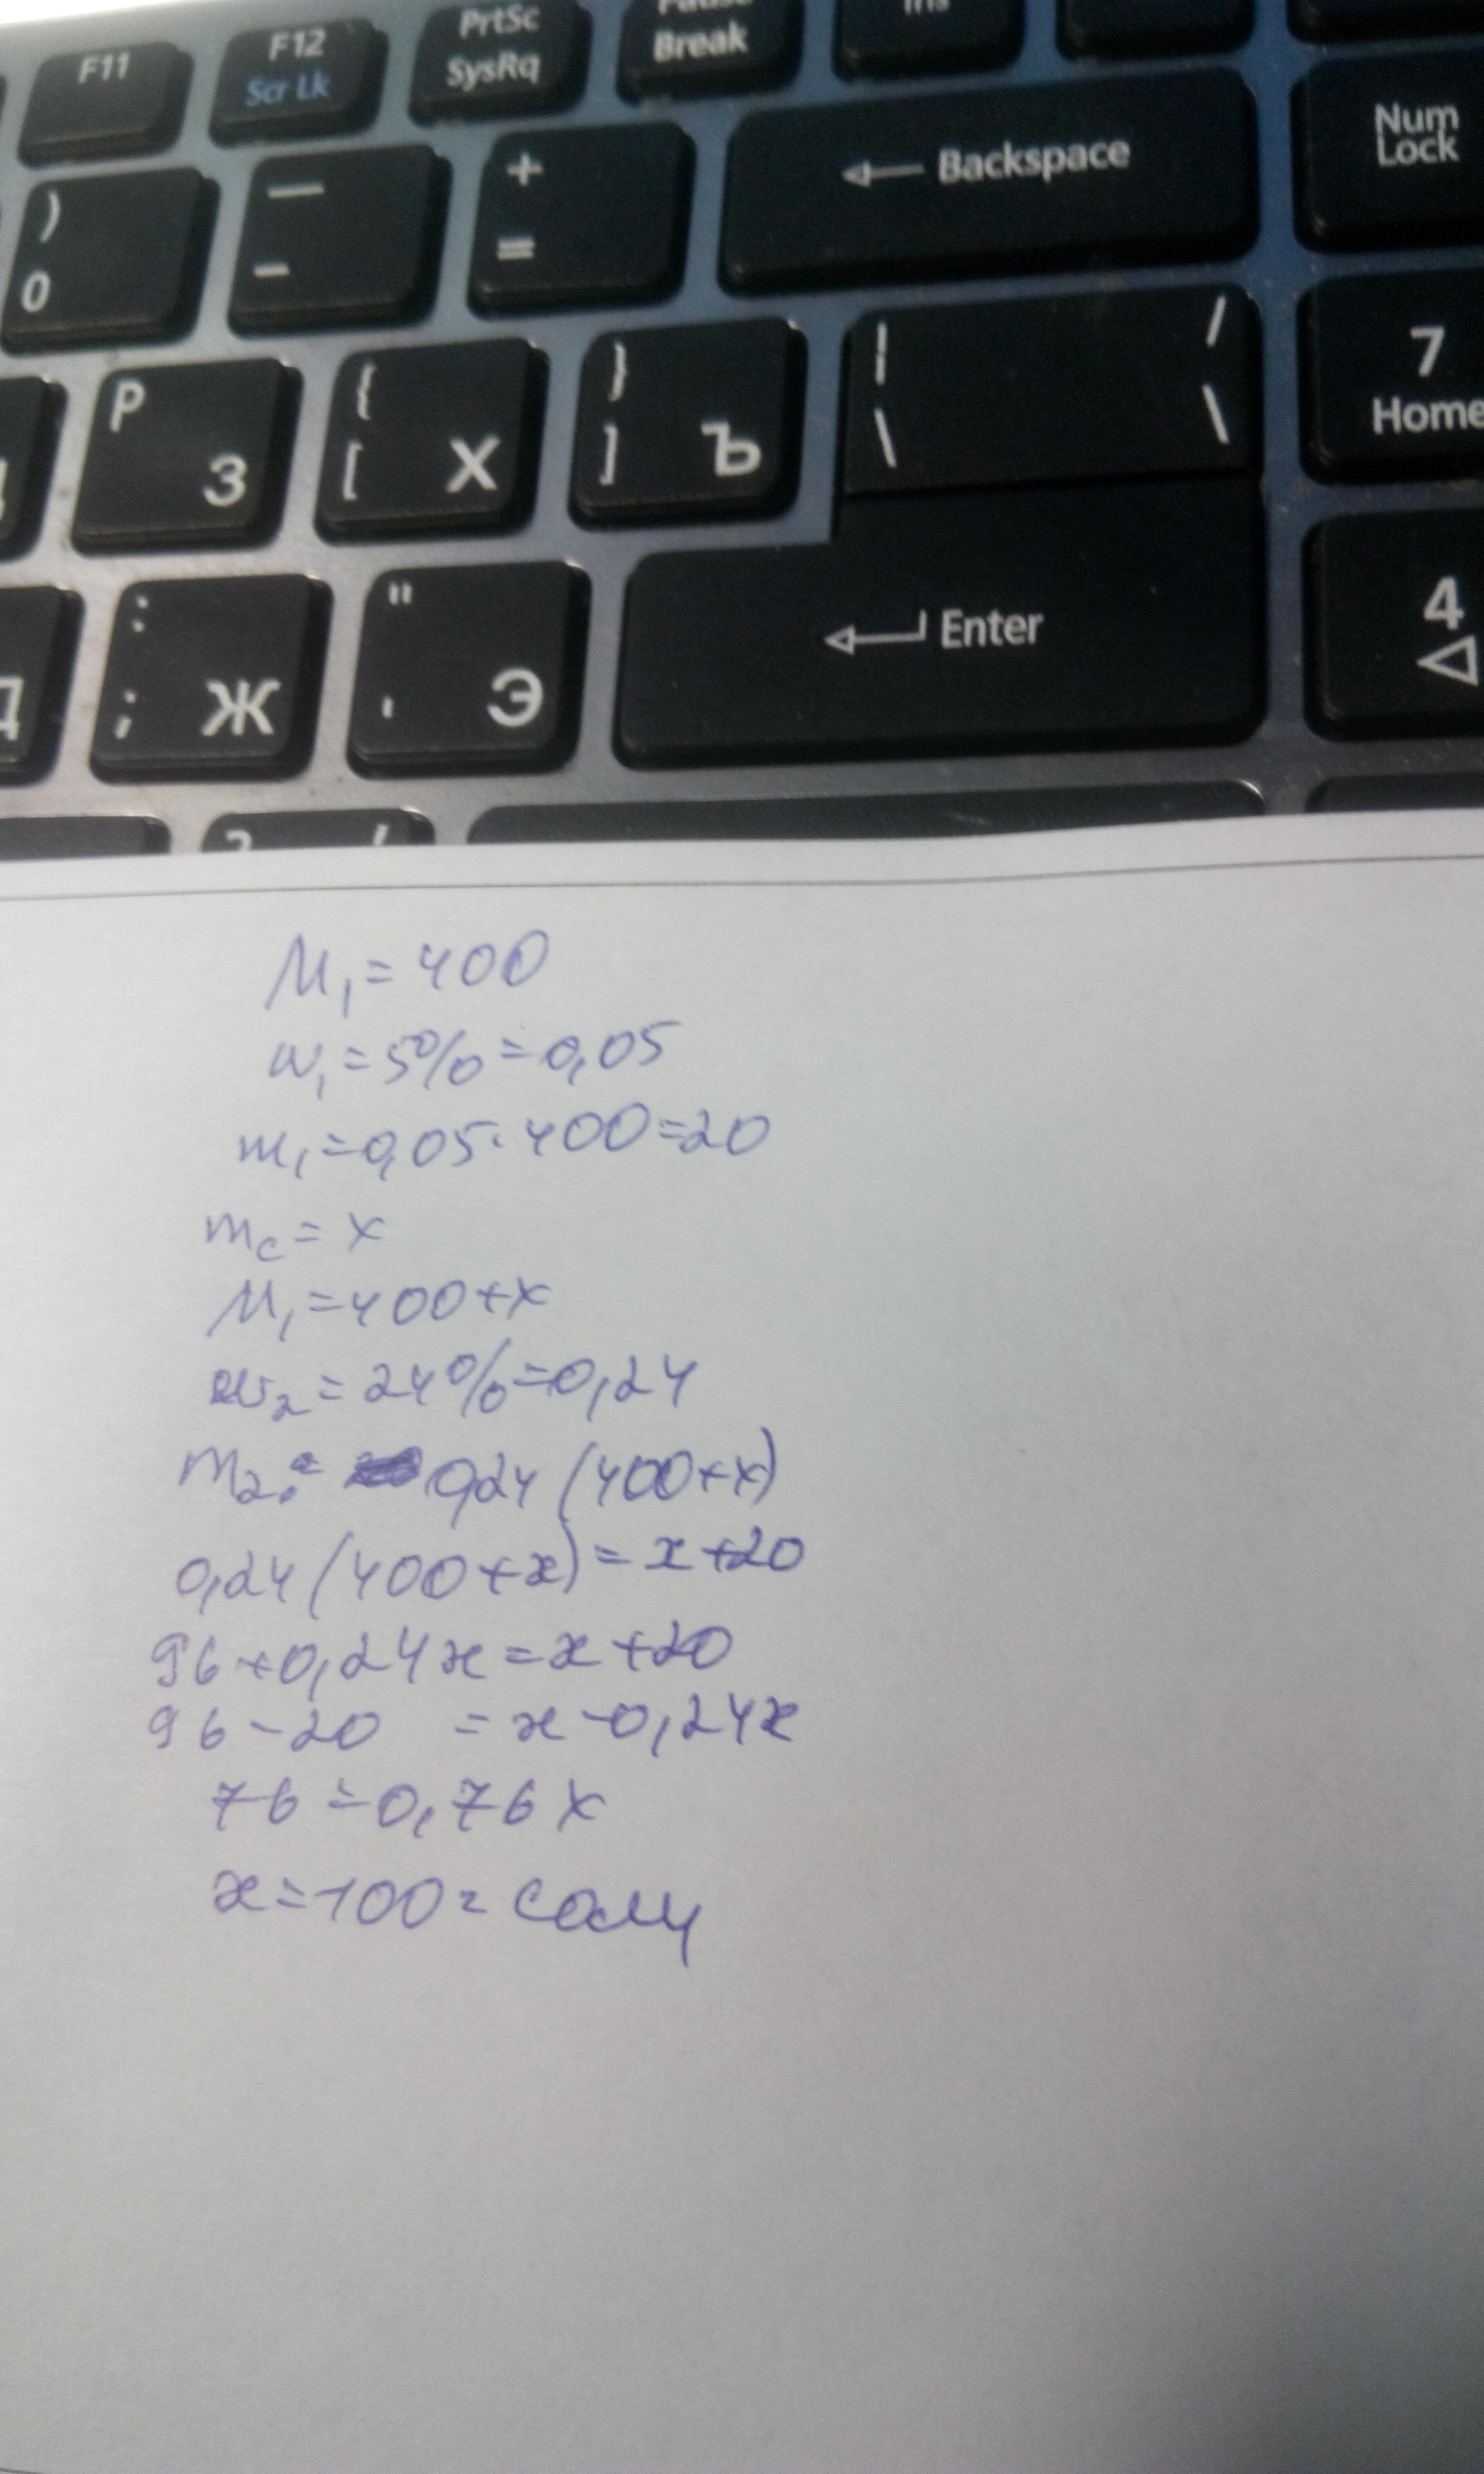 F11 F12 PrtSc Break
Scr Lk SysRq
) — + ← Backspace Num
0 - = Lock
P { } | / 7
З [ Х ] Ъ \ \ Home
: " ← Enter 4
Д ; Ж ' Э ◁
M₁=400
w₁=5%=0,05
m₁=0,05·400=20
m_c=x
M₁=400+x
w₂=24%=0,24
m₂= 0,24(400+x)
0,24(400+x)=x+20
96+0,24x=x+20
96-20 =x-0,24x
76=0,76x
x=100г соли